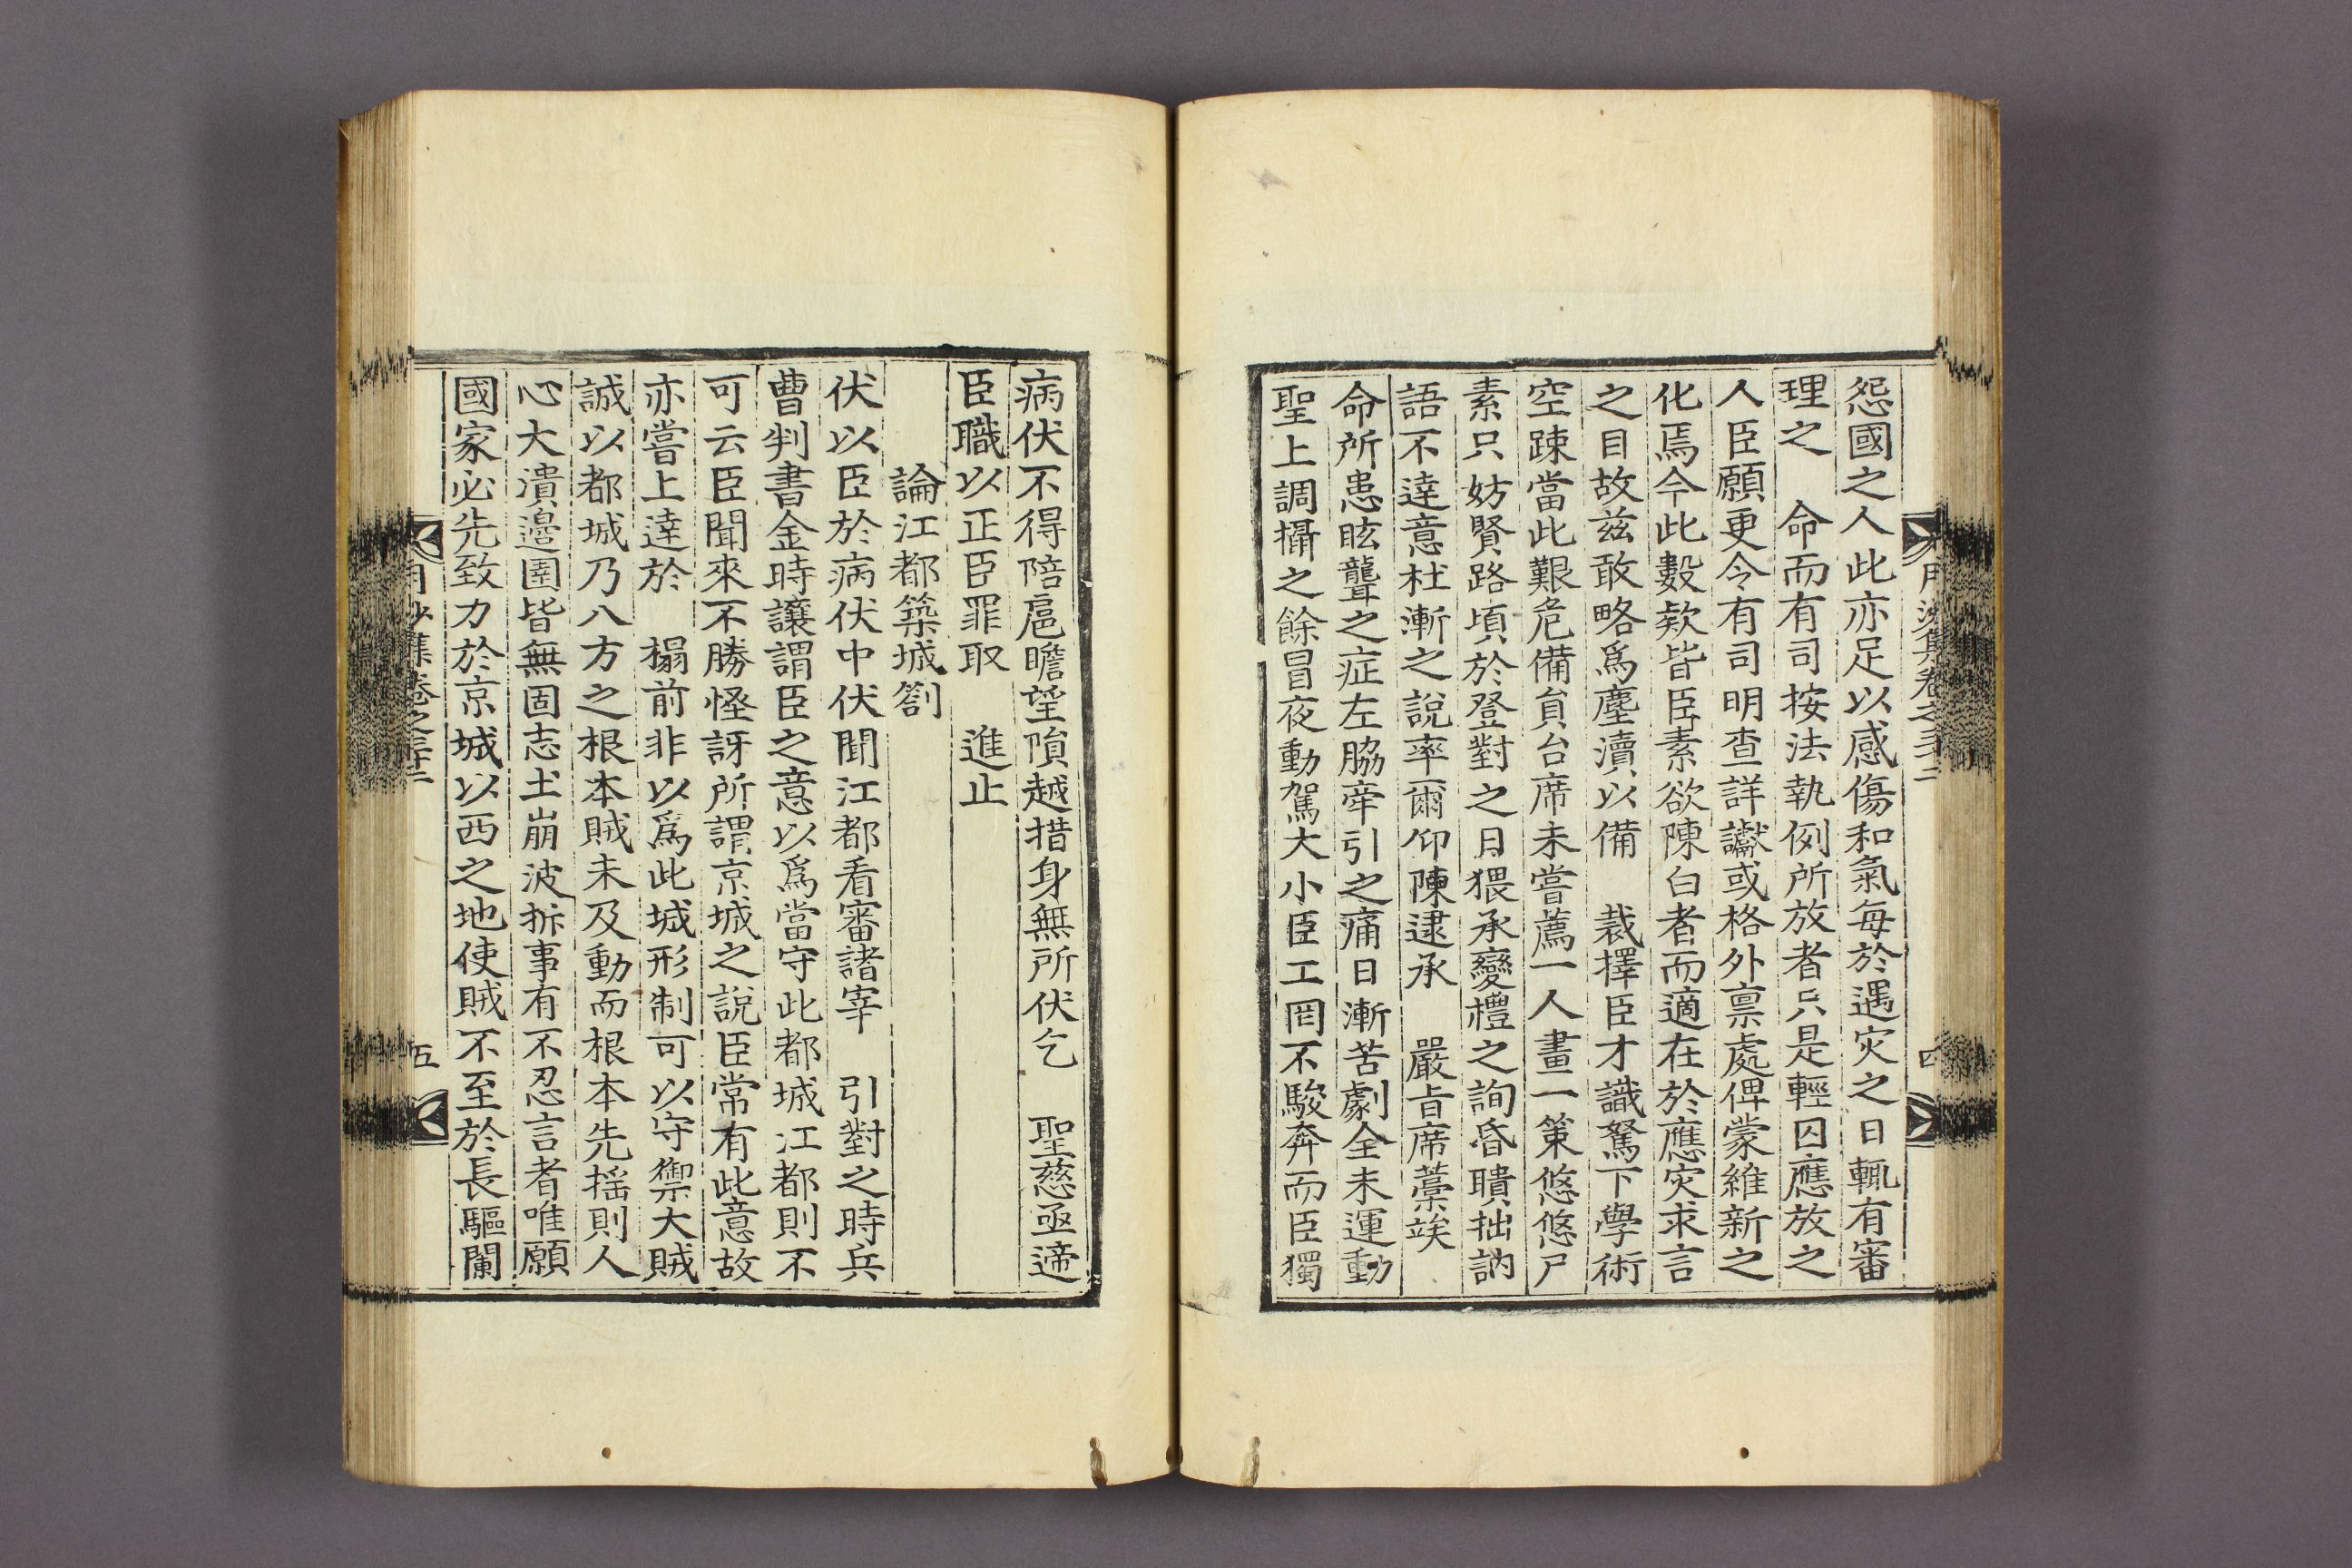 怨國之人此亦足以感傷和氣每於遇灾之日輒有審
理之　命而有司按法執例所放者只是輕囚應放之
人臣願更令有司明查詳讞或格外禀處俾蒙維新之
化焉今此數款皆臣素欲陳白者而適在於應灾求言
之目故茲敢略爲塵瀆以備　裁擇臣才識駑下學術
空踈當此艱危備負台席未嘗薦一人畫一策悠悠尸
素只妨賢路頃於登對之日猥承變禮之詢昏聵拙訥
語不達意杜漸之說率爾仰陳逮承　嚴旨席藁竢
命所患眩聾之症左脇牽引之痛日漸苦劇全未運動
聖上調攝之餘冒夜動駕大小臣工罔不駿奔而臣獨
病伏不得陪扈瞻望隕越措身無所伏乞　聖慈亟遞
臣職以正臣罪取　進止
論江都築城劄
伏以臣於病伏中伏聞江都看審諸宰　引對之時兵
曹判書金時讓謂臣之意以爲當守此都城江都則不
可云臣聞來不勝怪訝所謂京城之說臣常有此意故
亦嘗上達於　榻前非以爲此城形制可以守禦大賊
誠以都城乃八方之根本賊未及動而根本先搖則人
心大潰邉圉皆無固志土崩波拆事有不忍言者唯願
國家必先致力於京城以西之地使賊不至於長驅闌
五